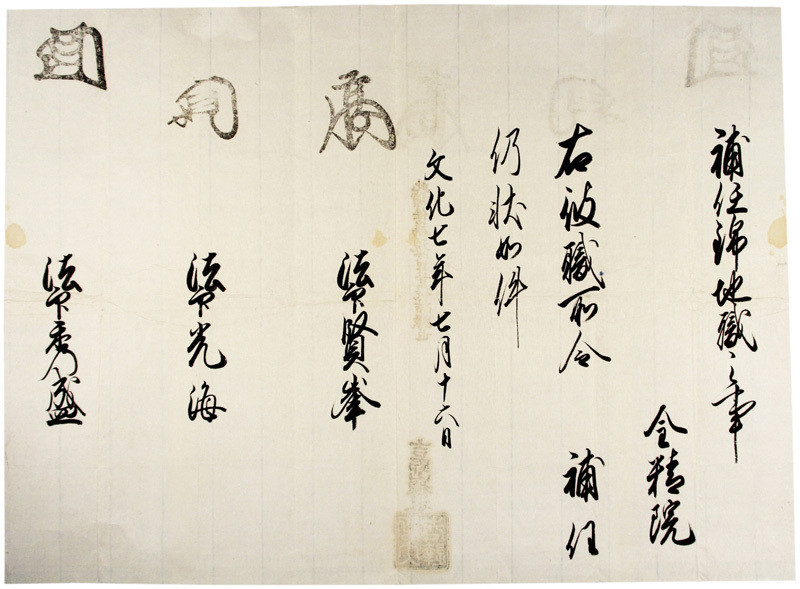 補任錦地職之事
金精院
右彼職所令 補任
仍状如件
文化七年七月十六日
法印賢峯
法印光海
法印秀盛